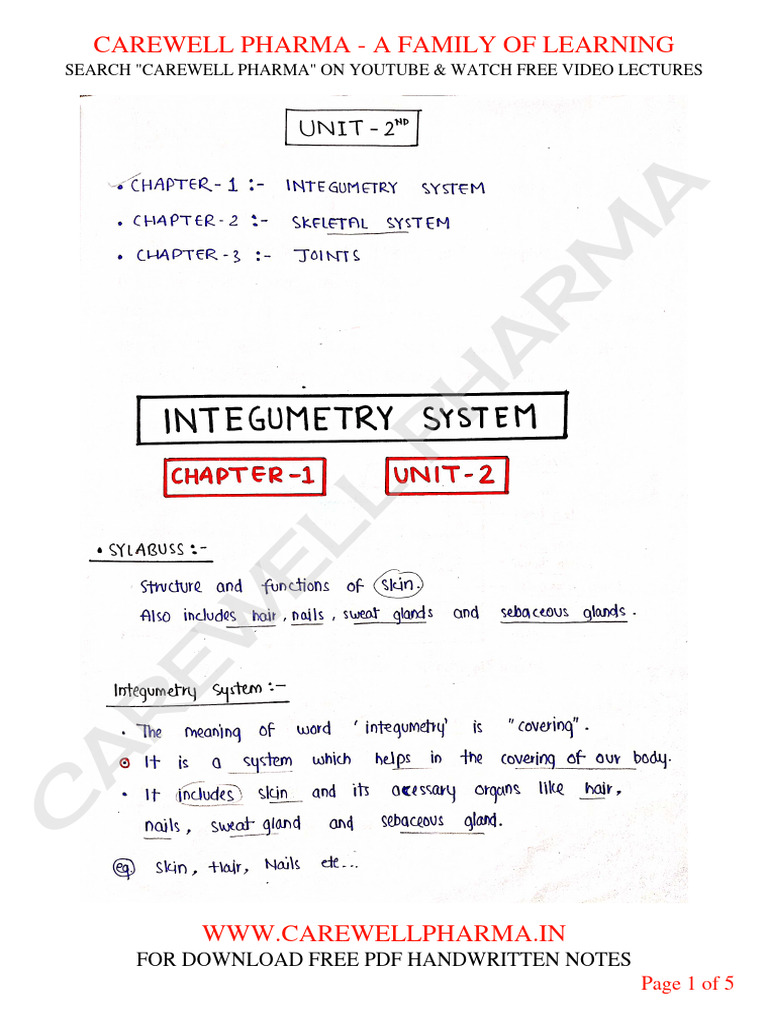 CAREWELL PHARMA - A FAMILY OF LEARNING
SEARCH "CAREWELL PHARMA" ON YOUTUBE & WATCH FREE VIDEO LECTURES
UNIT - 2ND
• CHAPTER - 1 :- INTEGUMETRY SYSTEM
• CHAPTER - 2 :- SKELETAL SYSTEM
• CHAPTER - 3 :- JOINTS
INTEGUMETRY SYSTEM
CHAPTER-1 UNIT-2
• SYLABUSS :-
Structure and functions of skin.
Also includes hair, nails, sweat glands and sebaceous glands.
Integumetry System :-
• The meaning of word 'integumetry' is "covering".
• It is a system which helps in the covering of our body.
• It includes skin and its acessary organs like hair,
nails, sweat gland and sebaceous gland.
eg. Skin, Hair, Nails etc...
CAREWELL PHARMA
WWW.CAREWELLPHARMA.IN
FOR DOWNLOAD FREE PDF HANDWRITTEN NOTES
Page 1 of 5